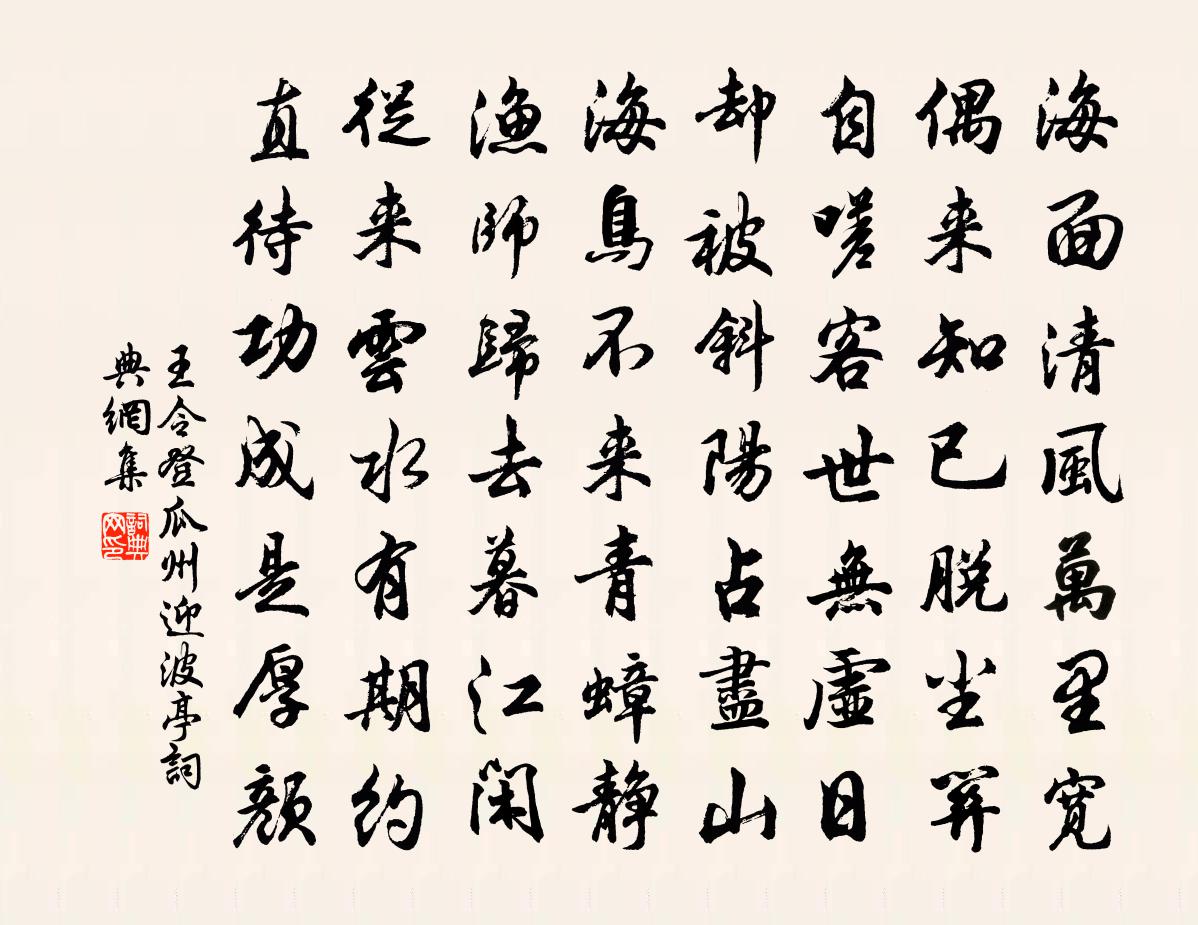 海面清風萬里寬
偶来知已脱尘羿
自嗟客世無虛日
却被斜陽占盡山
海鳥不来青蟑靜
漁師歸去暮江閑
從来雲水有期約
直待功成是厚顔
王令登瓜州迎波亭詞
典網集
詞典
网印